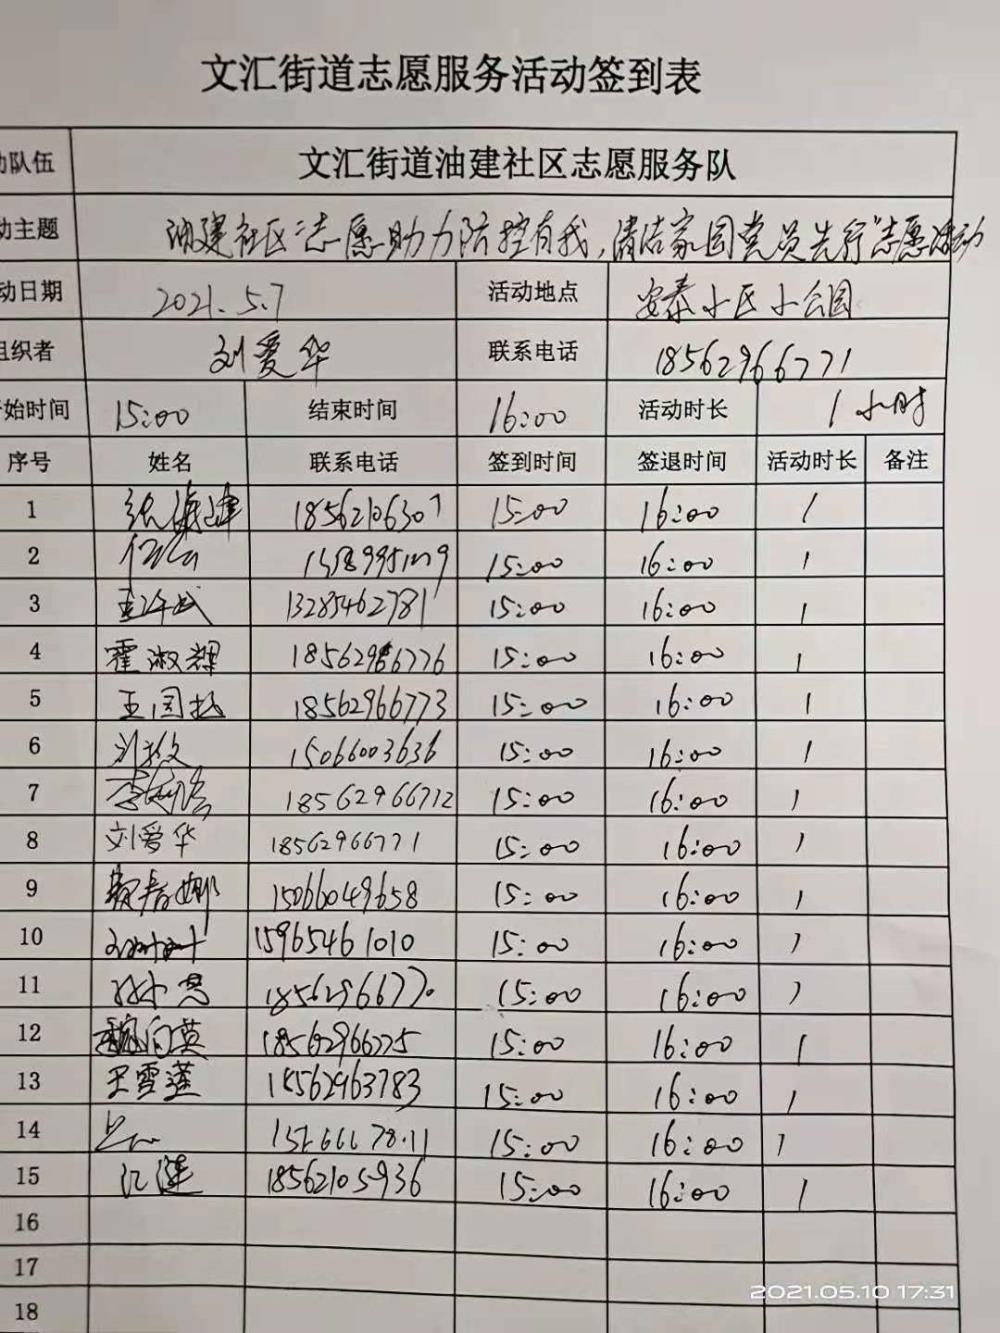 文汇街道志愿服务活动签到表
动队伍 文汇街道油建社区志愿服务队
动主题 油建社区"志愿助力防控有我，清洁家园党员先行"志愿活动
动日期 2021.5.7 活动地点 安泰小区小公园
组织者 刘爱华 联系电话 18562966771
开始时间 15:00 结束时间 16:00 活动时长 1小时
序号 姓名 联系电话 签到时间 签退时间 活动时长 备注
1 18562106307 15:00 16:00 1
2 15:00 16:00 1
3 13285462781 15:00 16:00 1
4 霍淑辉 18562966776 15:00 16:00 1
5 王国 18562966773 15:00 16:00 1
6 15066003636 15:00 16:00 1
7 18562966712 15:00 16:00 1
8 刘爱华 18562966771 15:00 16:00 1
9 15066049658 15:00 16:00 1
10 15965461010 15:00 16:00 1
11 18562966770 15:00 16:00 1
12 魏向英 18562966775 15:00 16:00 1
13 王雪莲 18562963783 15:00 16:00 1
14 15:00 16:00 1
15 江莲 18562105936 15:00 16:00 1
16
17
18
2021.05.10 17:31